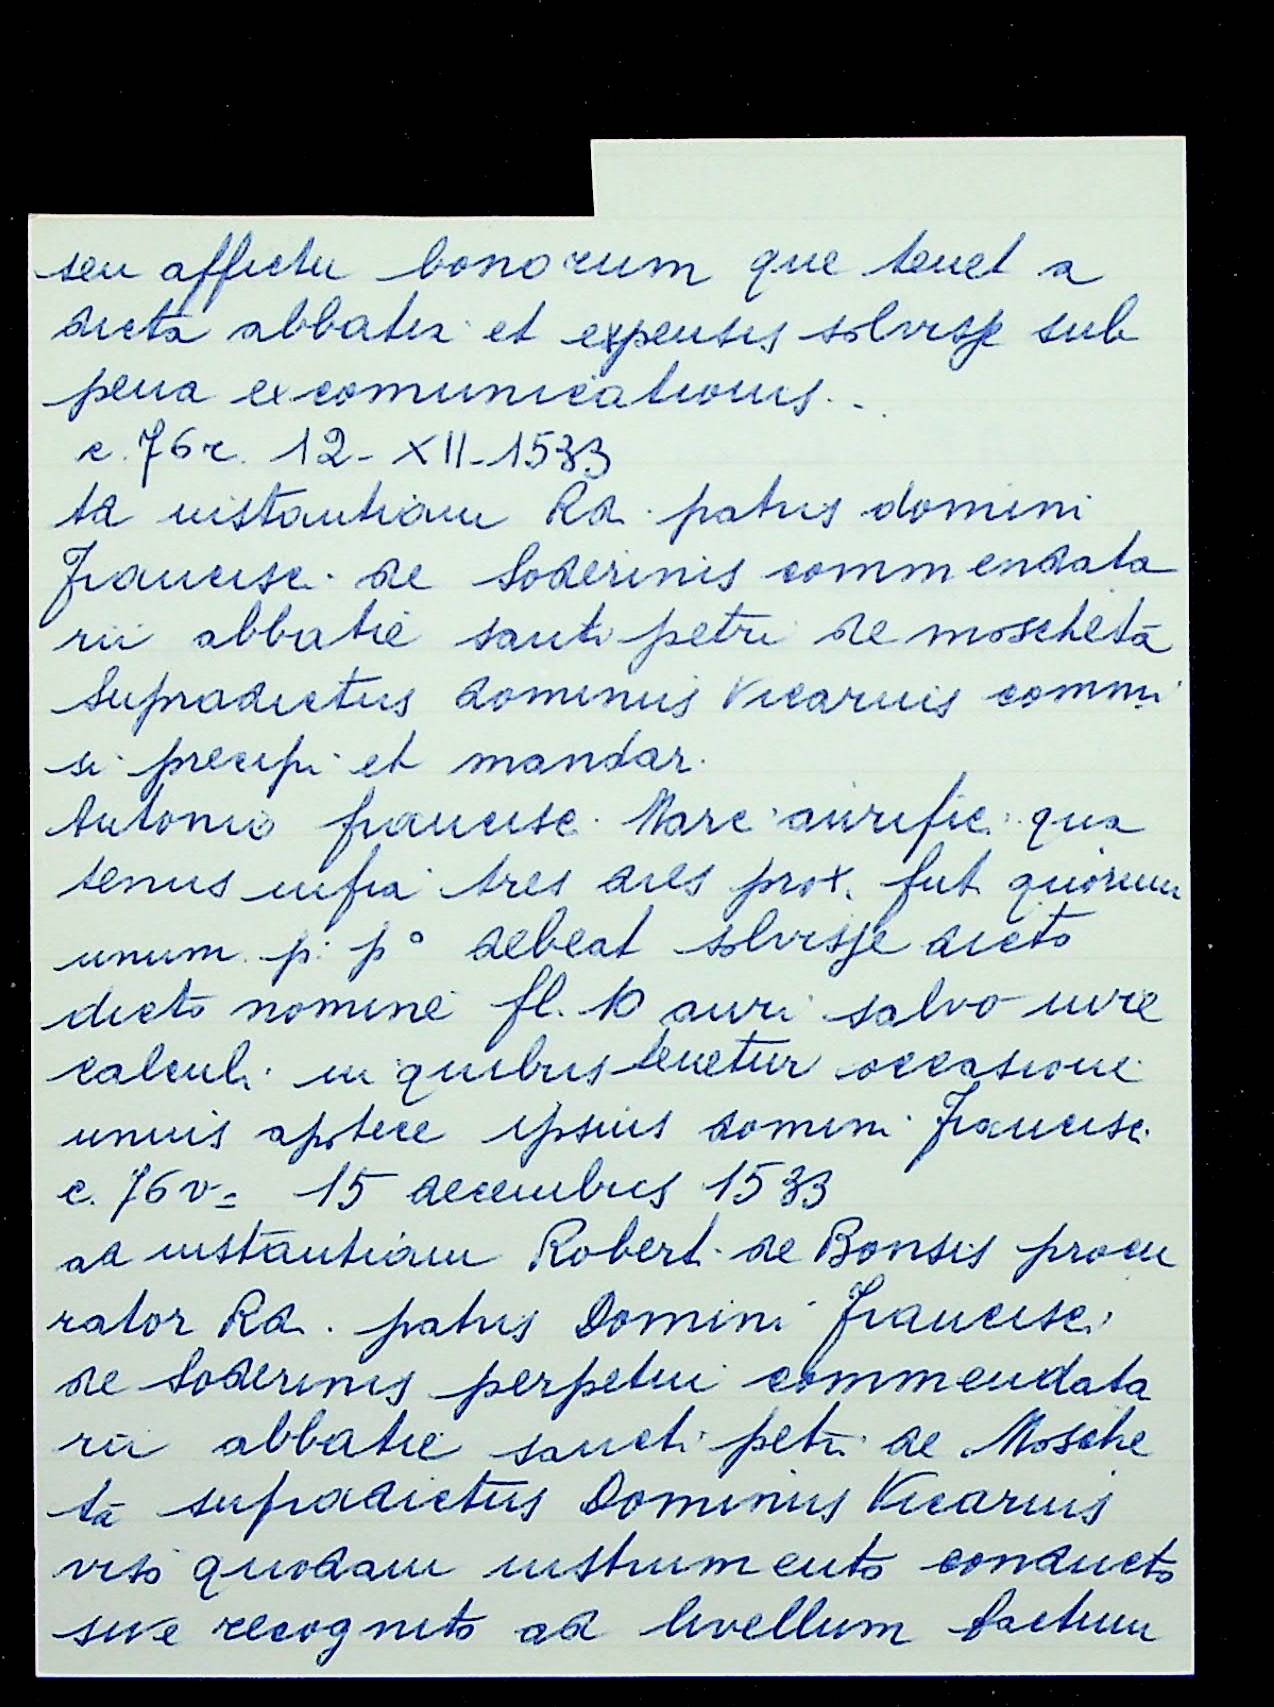 seu affictu bonorum que tenet a
dicta abbatia et expensis solvisse sub
pena excomunicationis..
c. 76r. 12-XII-1533
Ad instantiam Rd. patris domini
Francisc. de Soderinis commendata
rii abbatie santi petri de moscheta
Supradictus dominus Vicarius commi
si precipi et mandar.
Antonio francisc. Marc. aurific. qua
tenus infra tres dies prox. fut. quorum
unum p. p° debeat solvisse dicto
dicto nomine fl. 10 auri salvo iure
calculi in quibus tenetur occasione
unius apotece ipsius domini Francisc.
c. 76v= 15 decembris 1533
ad instantiam Robert. de Bonsis procu
rator Rd. patris Domini Francisci
de Soderinis perpetui commendata
rii abbatie sancti petri de Mosche
ta supradictus Dominus Vicarius
viso quodam instrumento conducto
sive recognito ad livellum factum